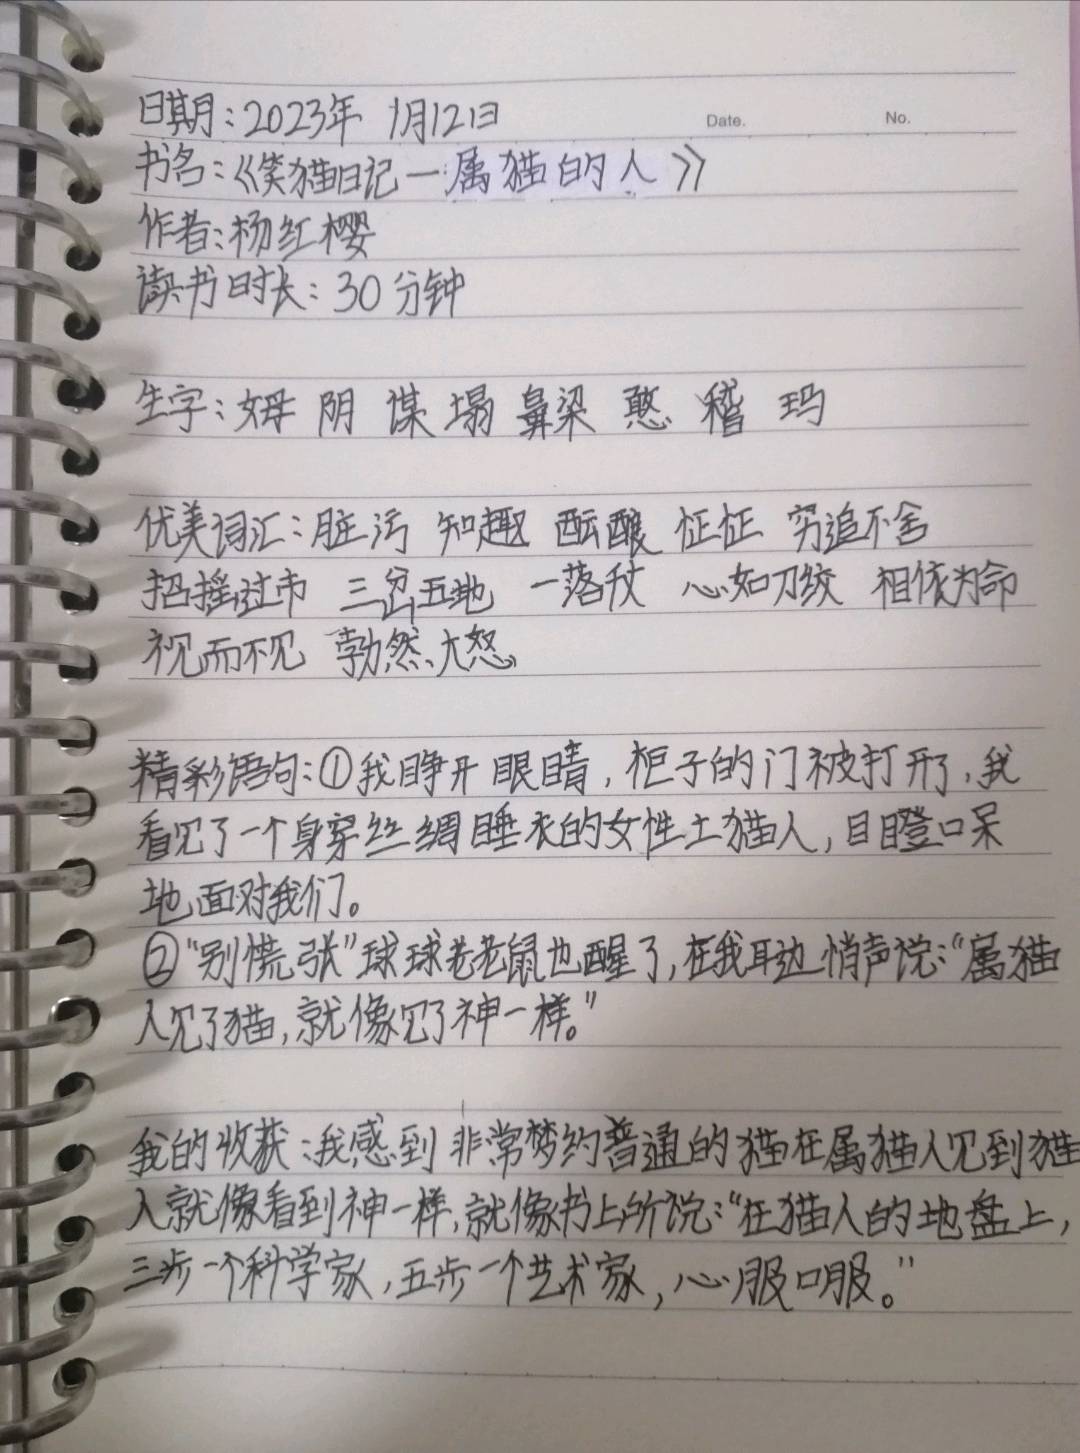 日期：2023年 1月12日
Date. No.
书名：《笑猫日记一属猫的人》
作者：杨红樱
读书时长：30分钟
生字：姆 阴 谋 塌 鼻梁 憨 稽 玛
优美词汇：脏污 知趣 酝酿 怔怔 穷追不舍
招摇过市 三岔五地 一落千丈 心如刀绞 相依为命
视而不见 勃然大怒
精彩语句：①我睁开眼睛，柜子的门被打开了，我
看见了一个身穿丝绸睡衣的女性土猫人，目瞪口呆
地面对我们。
②“别慌张”球球老老鼠也醒了，在我耳边悄声说：“属猫
人见了猫，就像见了神一样。”
我的收获：我感到非常梦约普通的猫在属猫人见到猫
人就像看到神一样，就像书上所说：“在猫人的地盘上，
三步一个科学家，五步一个艺术家，心服口服。”